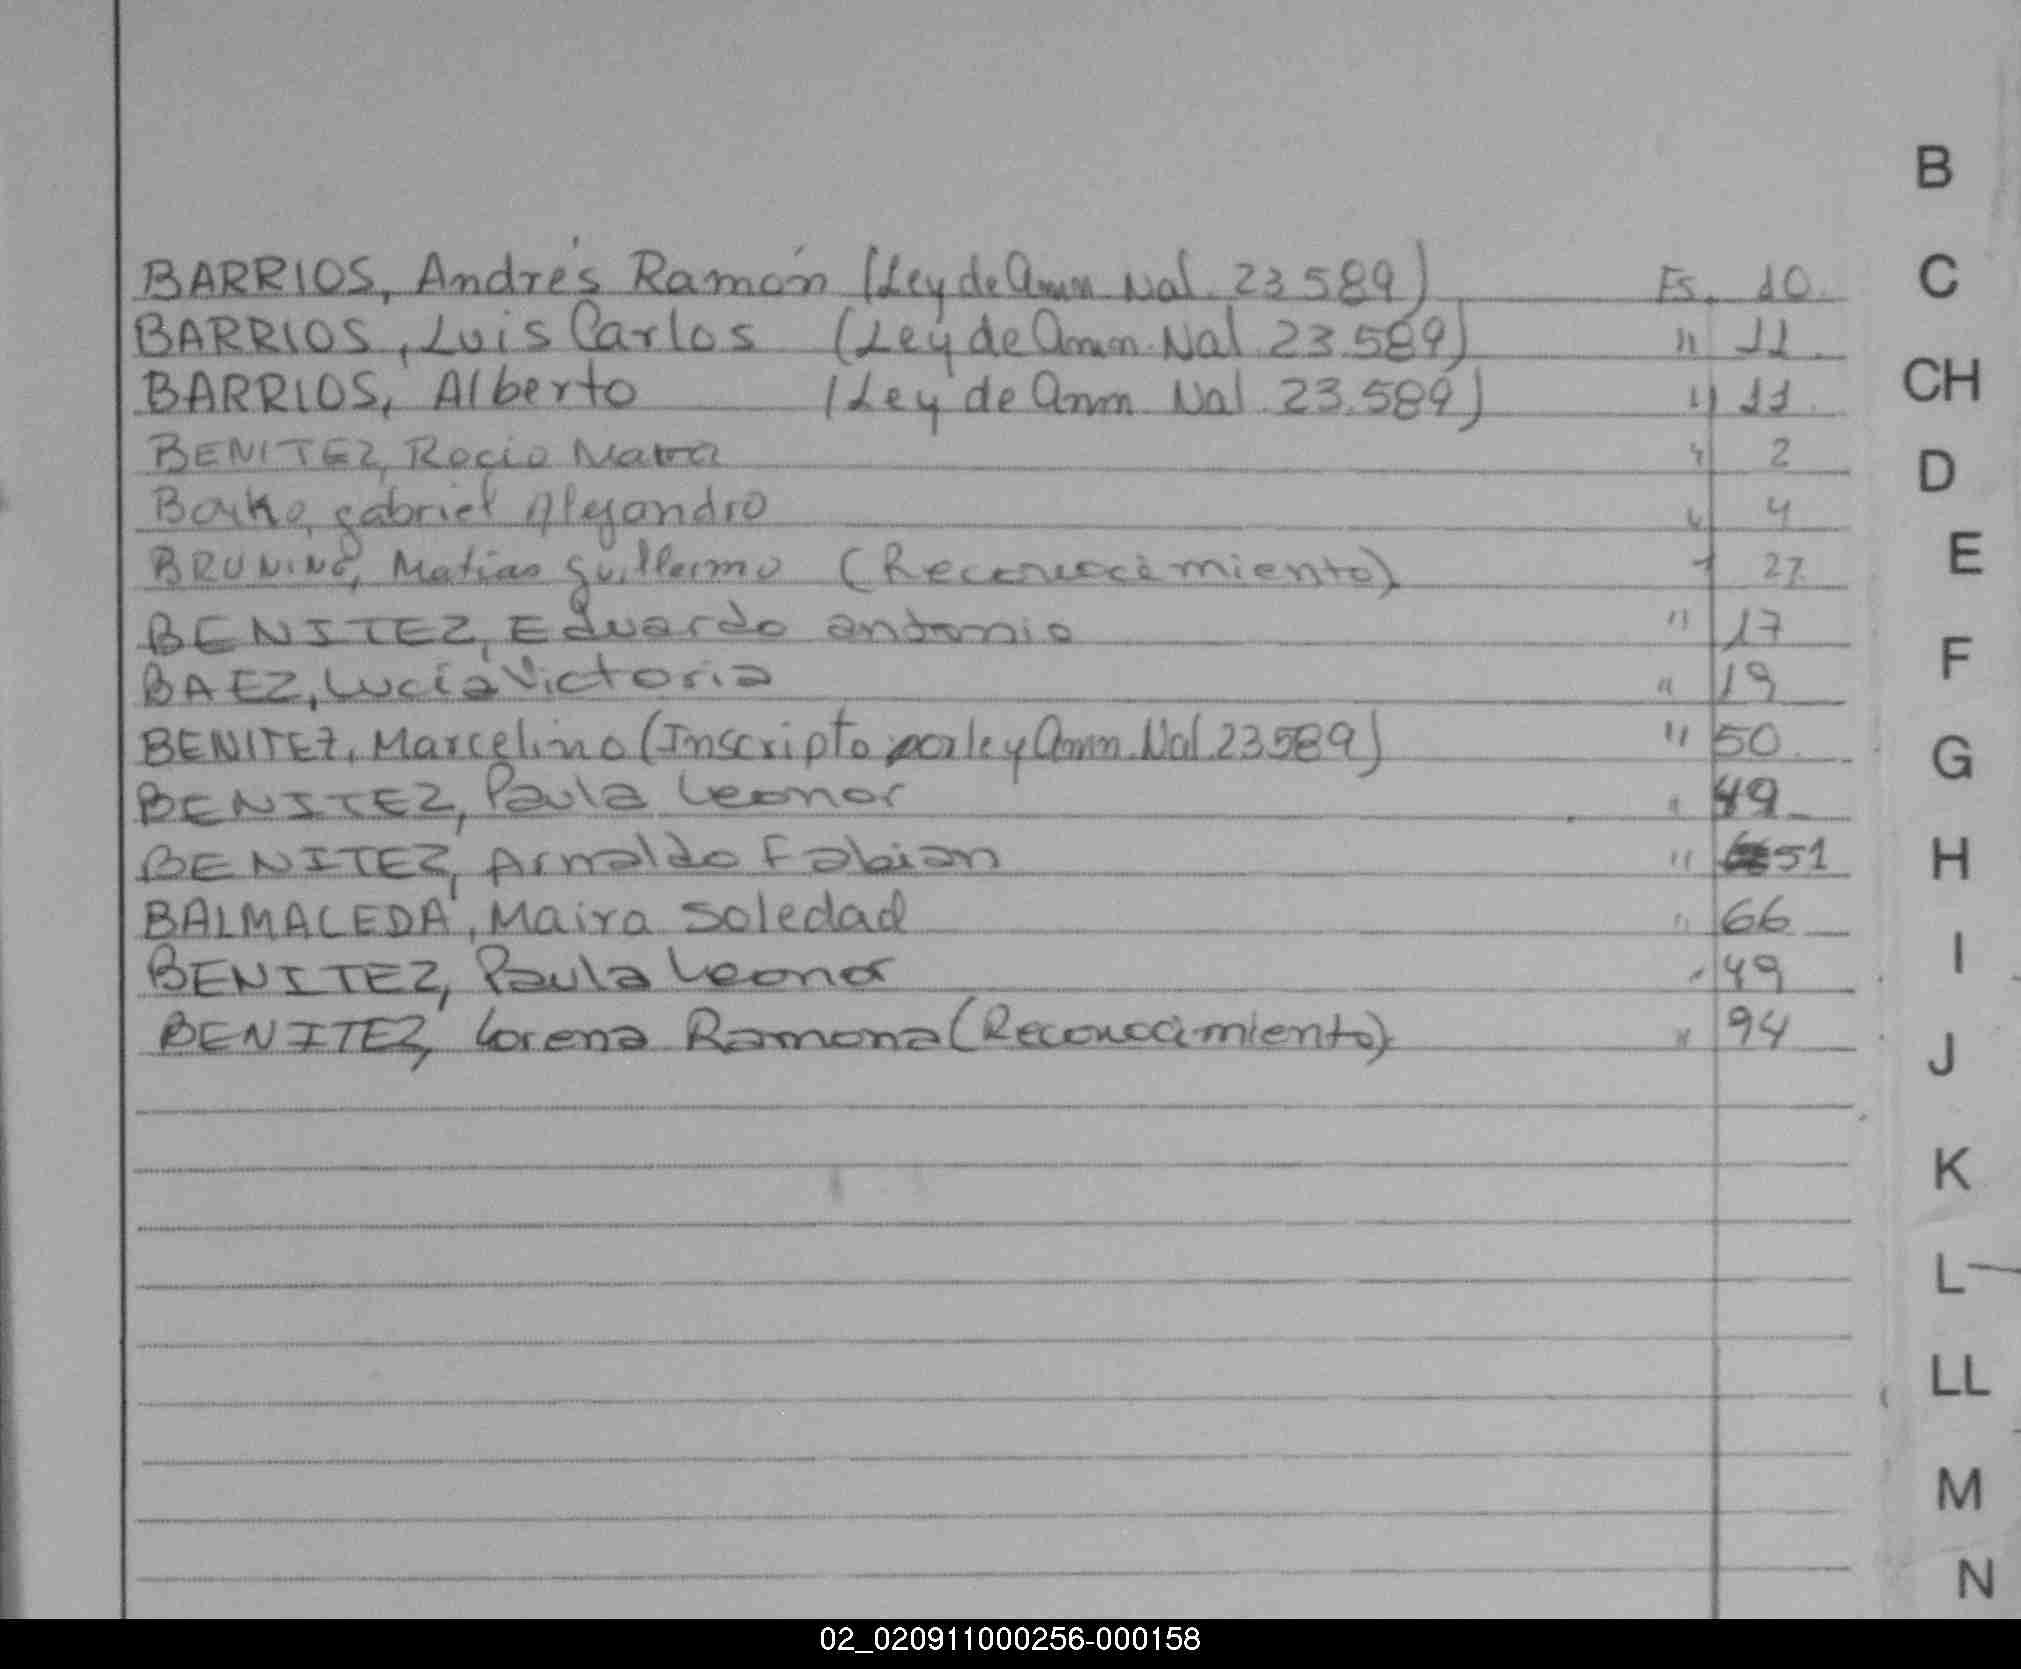 B
BARRIOS, Andrés Ramón (Ley de Amn Nal. 23589) Fs. 10.
C
BARRIOS, Luis Carlos (Ley de Amn. Nal 23.589) " 11
BARRIOS, Alberto (Ley de Amn Nal. 23.589) " 11
CH
BENITEZ, Rocio " 2
D
gabriel Alejandro " 4
E
Matias guillermo (Reconocimiento) " 27
BENITEZ, Eduardo antonio " 17
F
BAEZ, Lucía Victoria " 19
BENITEZ, Marcelino (Inscripto por ley Amn. Nal. 23589) " 50
G
BENITEZ, Paula Leonor " 49
BENITEZ, Arnaldo Fabian " 51
H
BALMACEDA, Maira Soledad " 66
I
BENITEZ, Paula Leonor " 49
BENITEZ, Lorena Ramona (Reconocimiento) " 94
J
K
L
LL
M
N
02_020911000256-000158